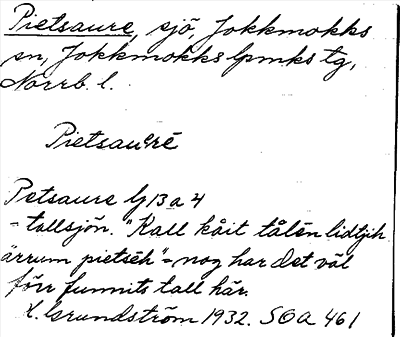 Pietsaure, sjö, Jokkmokks
sn, Jokkmokks lpmks tg,
Norrb. l.
Pietsauʳrē
Petsaure Lg 13 a 4
= tallsjön. "Kall kåit tålēn lidtjih
ärrum pietsēh" = nog har det väl
förr funnits tall här.
H. Grundström 1932. SOA 461